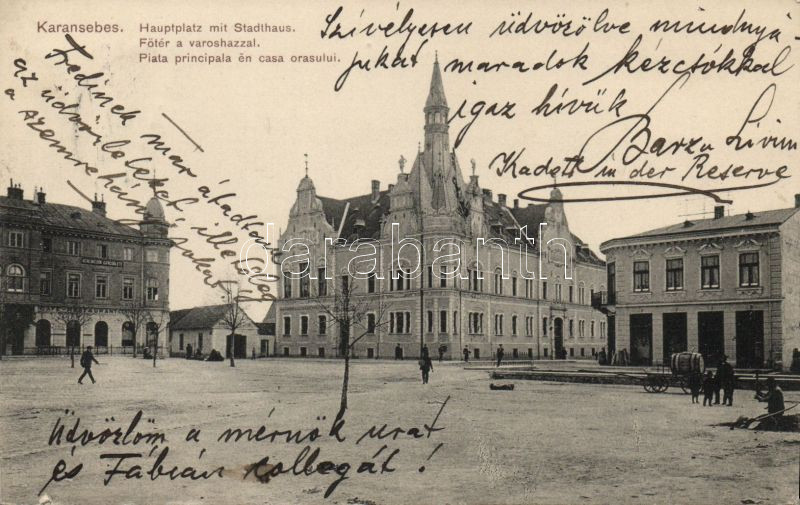 Karansebes. Hauptplatz mit Stadthaus.
Főtér a varoshazzal.
Piata principala ĕn casa orasului.
Szívélyesen üdvözölve mindnyá-
jukat maradok kézcsókkal
igaz hívük
Barzu Livius
Kadett in der Reserve
Fredinek már átadtam
az üdvözletet, illetőleg
a szemre
darabanth
Üdvözlöm a mérnök urat
és Fábián kollegát!